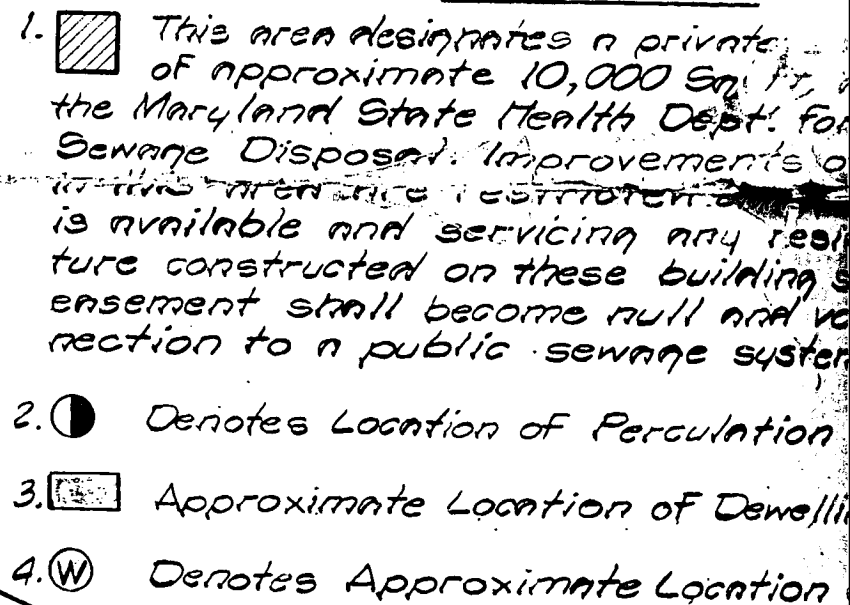 1. This area designates a private
of approximate 10,000 Sq. Ft,
the Maryland State Health Dept. for
Sewage Disposal. Improvements o
in this area are restricted
is available and servicing any resi
ture constructed on these building s
easement shall become null and vo
nection to a public sewage system
2. Denotes Location of Perculation
3. Approximate Location of Dewelli
4. W Denotes Approximate Location